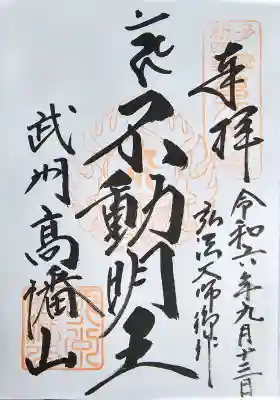 奉拝
令和六年九月十三日
弘法大師御作
不動明王
武州高幡山